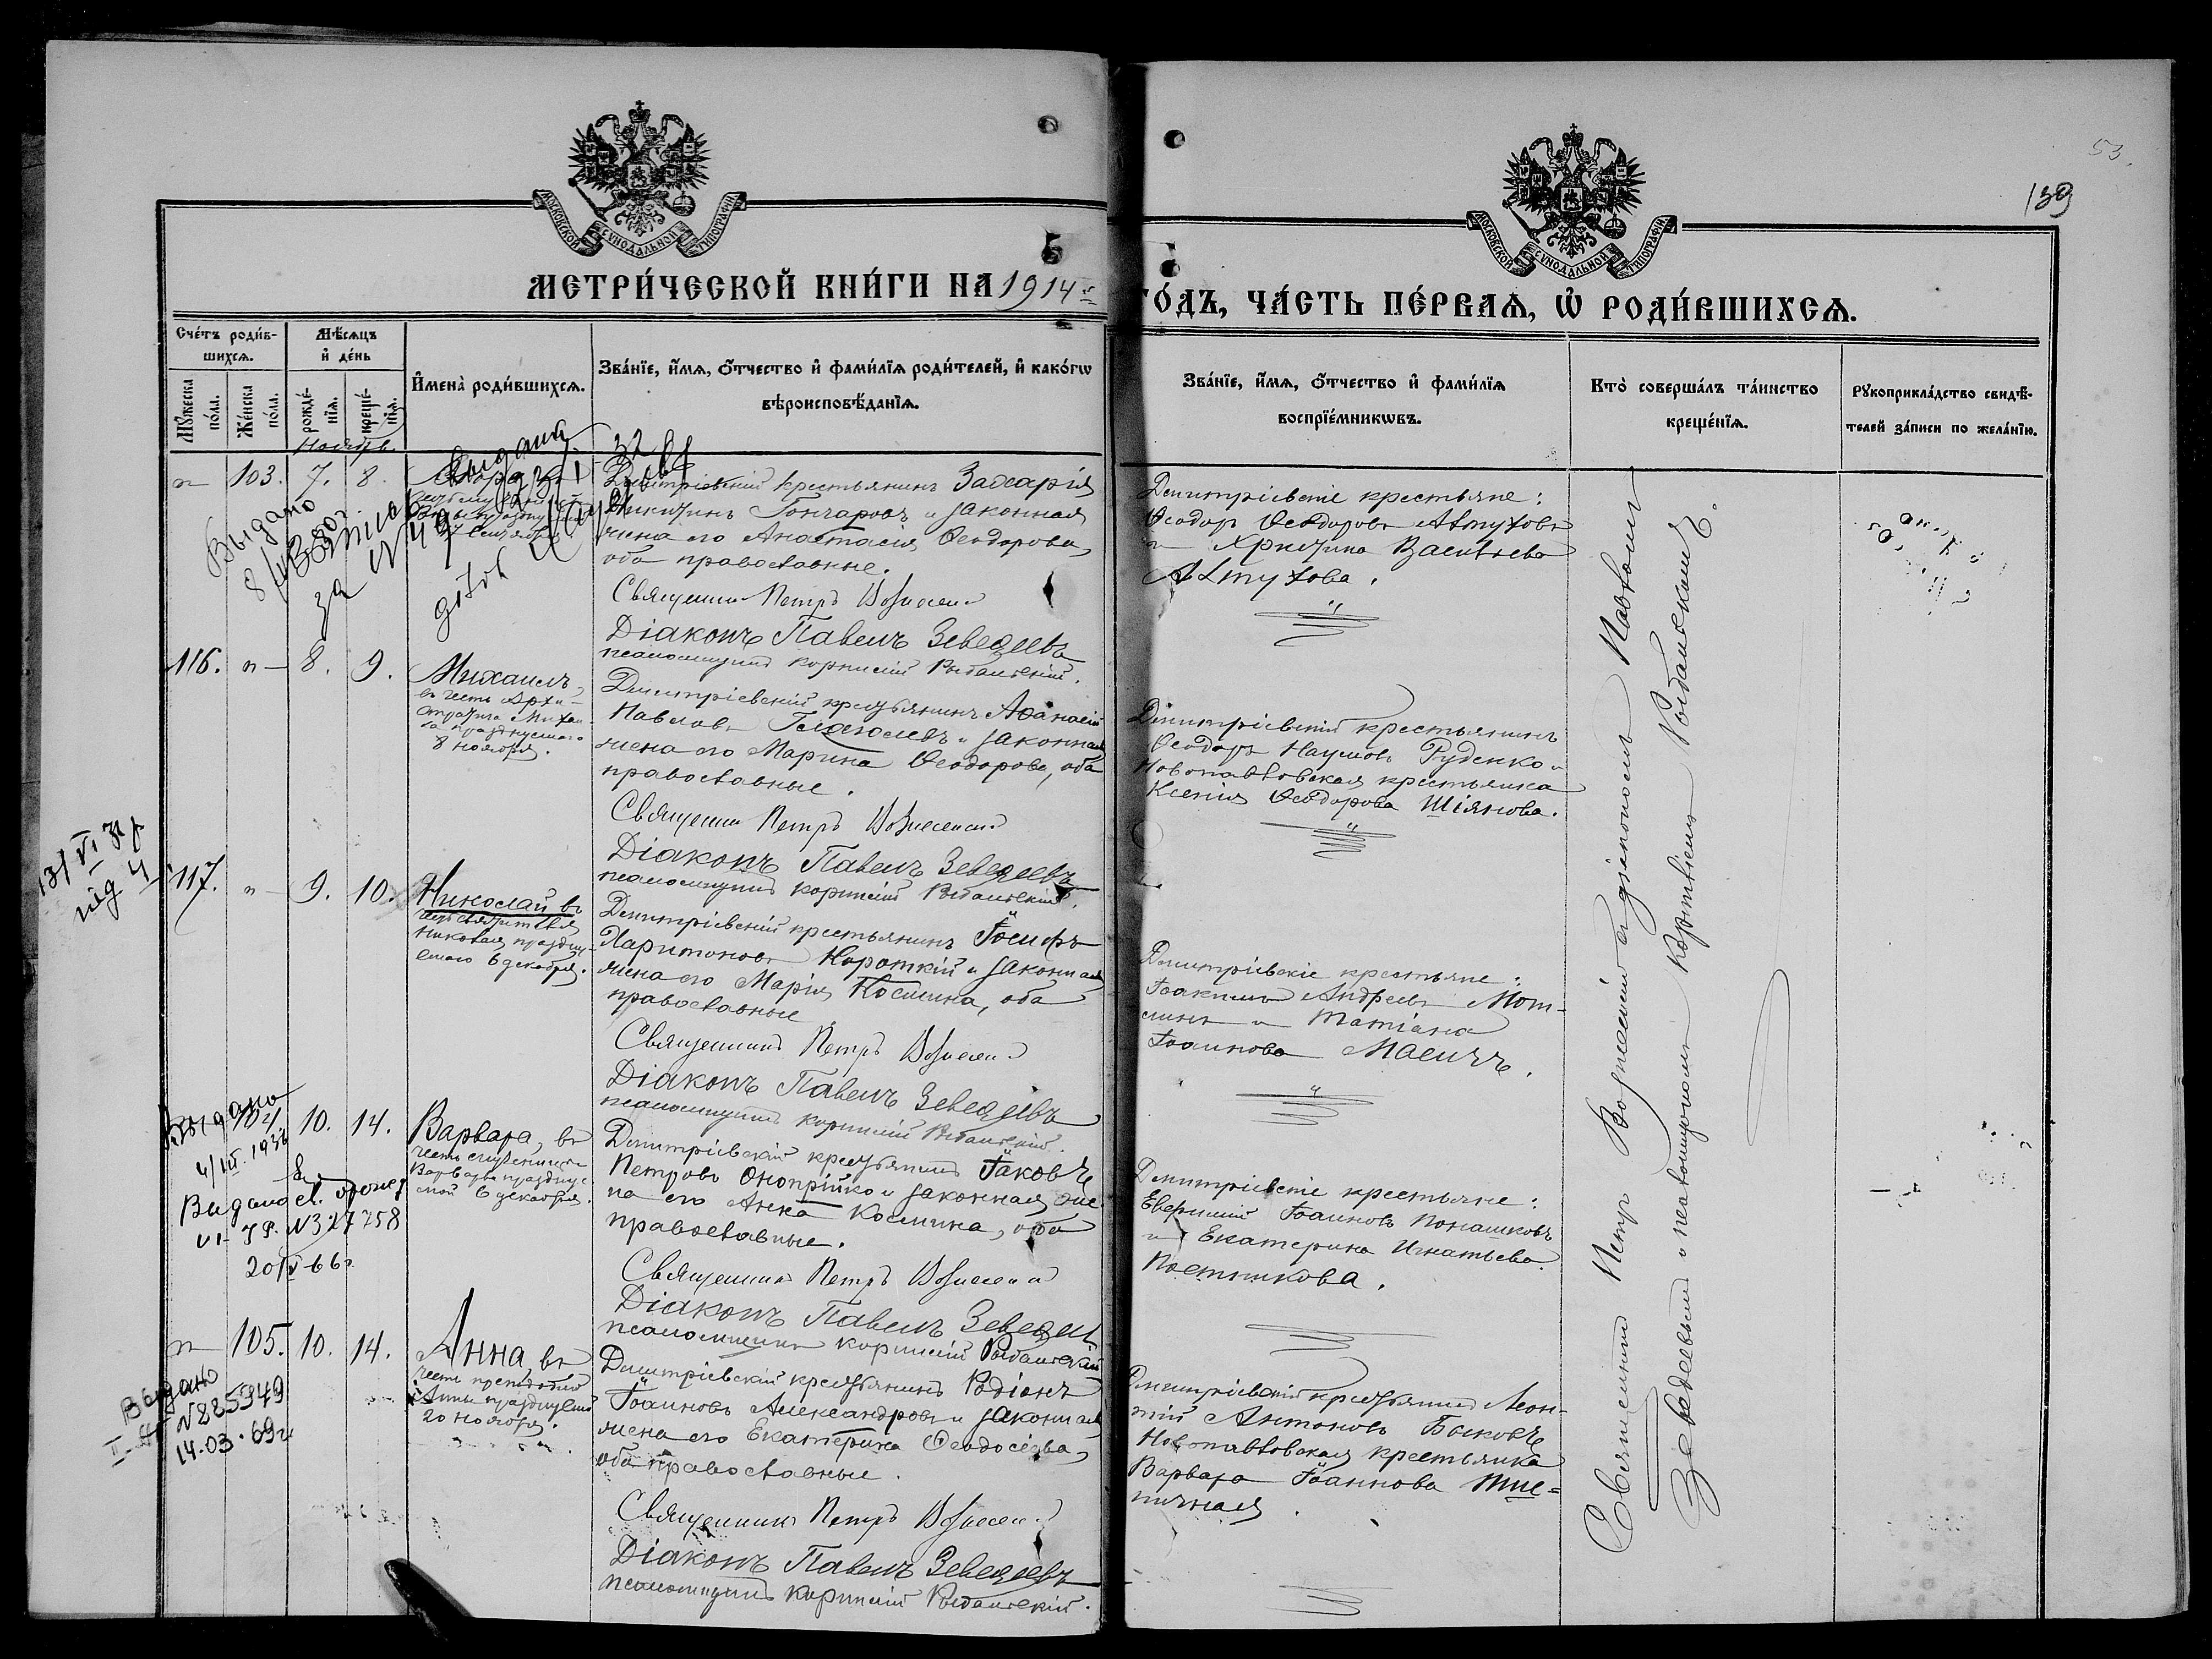 53.
139
МОСКОВСКОЙ СѴНОДАЛЬНОЙ ТИПОГРАФІИ
МОСКОВСКОЙ СѴНОДАЛЬНОЙ ТИПОГРАФІИ
МЕТРИ́ЧЕСКОЙ КНИ́ГИ НА 1914 г.
ГО́ДЪ, ЧА́СТЬ ПЕ́РВАѦ, Ѿ РОДИ́ВШИХСѦ.
Сче́тъ роди́в-
шихсѧ.
Мꙋ́жеска по́ла.
Же́нска по́ла.
Мѣ́сѧцъ
и҆ де́нь
рожде́-
нїѧ.
креще́-
нїѧ.
И҆мена̀ роди́вшихсѧ.
Зва́нїе, и҆́мѧ, ѻ҆́тчество и҆ фами́лїѧ роди́телей, и҆ како́гѡ
вѣроисповѣ́данїѧ.
Зва́нїе, и҆́мѧ, ѻ҆́тчество и҆ фами́лїѧ
воспрїе́мникѡвъ.
Кто̀ соверша́лъ та́инство
креще́нїѧ.
Рꙋкоприкла́дство свидѣ́-
телей за́писи по жела́нїю.
Ноябрь.
103. 7. 8.
Выдана
Выдано
за № 49
Димитріевскій крестьянинъ Захарія
Никитинъ Гончаровъ и законная
жена его Анастасія Ѳеодорова,
оба православные.
Священникъ Петръ Вознесенск
Діаконъ Павелъ Зеведеевъ
псаломщикъ Корнилій Рыбальскій.
Димитріевскіе крестьяне:
Ѳеодоръ Ѳеодоровъ Алтуховъ
и Христина Васильева
Алтухова.
116. 8. 9.
Михаилъ,
въ честь Архи-
стратига Михаи-
ла празднуемаго
8 ноября.
Димитріевскій крестьянинъ Аѳанасій
Павловъ Глаголевъ и законная
жена его Марина Ѳеодорова, оба
православные.
Священник Петръ Вознесенск
Діаконъ Павелъ Зеведеевъ
псаломщикъ Корнилій Рыбальскій.
Димитріевскій крестьянинъ
Ѳеодоръ Наумовъ Руденко и
Новопавловская крестьянка
Ксенія Ѳеодорова Шіянова.
117. 9. 10.
Николай въ
честь святителя
Николая праздну-
емаго 6 декабря.
Димитріевскій крестьянинъ Іосифъ
Харитоновъ Короткій и законная
жена его Марія Космина, оба
православные
Священникъ Петръ Вознесенск
Діаконъ Павелъ Зеведеевъ
псаломщикъ Корнилій Рыбальскій.
Димитріевскіе крестьяне:
Іоакимъ Андреевъ Мот-
и Татіана
Іоаннова
Выдано
104. 10. 14.
4/III. 193
№327758
20/V-66г
Варвара, въ
честь мученицы
Варвары празднуе-
мой 6 декабря.
Димитріевскій крестьянинъ Іаковъ
Петровъ Оноприйко и законная же-
на его Анна Космина, оба
православные.
Священникъ Петръ Вознесенск
Діаконъ Павелъ Зеведеевъ
псаломщикъ Корнилій Рыбальскій
Димитріевскіе крестьяне:
Іоанновъ Понашковъ
и Екатерина Игнатьева
Постникова.
105. 10. 14.
Выдано
№ 885949
14.03.69г
Анна, въ
честь преподобной
Анны празднуемой
20 ноября.
Димитріевскій крестьянинъ Родіонъ
Іоанновъ Александровъ и законная
жена его Екатерина Ѳеодосіева,
оба православные.
Священникъ Петръ Вознесенск
Діаконъ Павелъ Зеведеевъ
псаломщикъ Корнилій Рыбальскій.
Димитріевскій крестьянинъ Леон-
тій Антоновъ Быковъ
Новопавловская крестьянка
Варвара Іоаннова Пше-
ничная.
Священникъ Петръ Вознесенскій съ діакономъ Павломъ
Зеведеевымъ и псаломщикомъ Корниліемъ Рыбальскимъ.